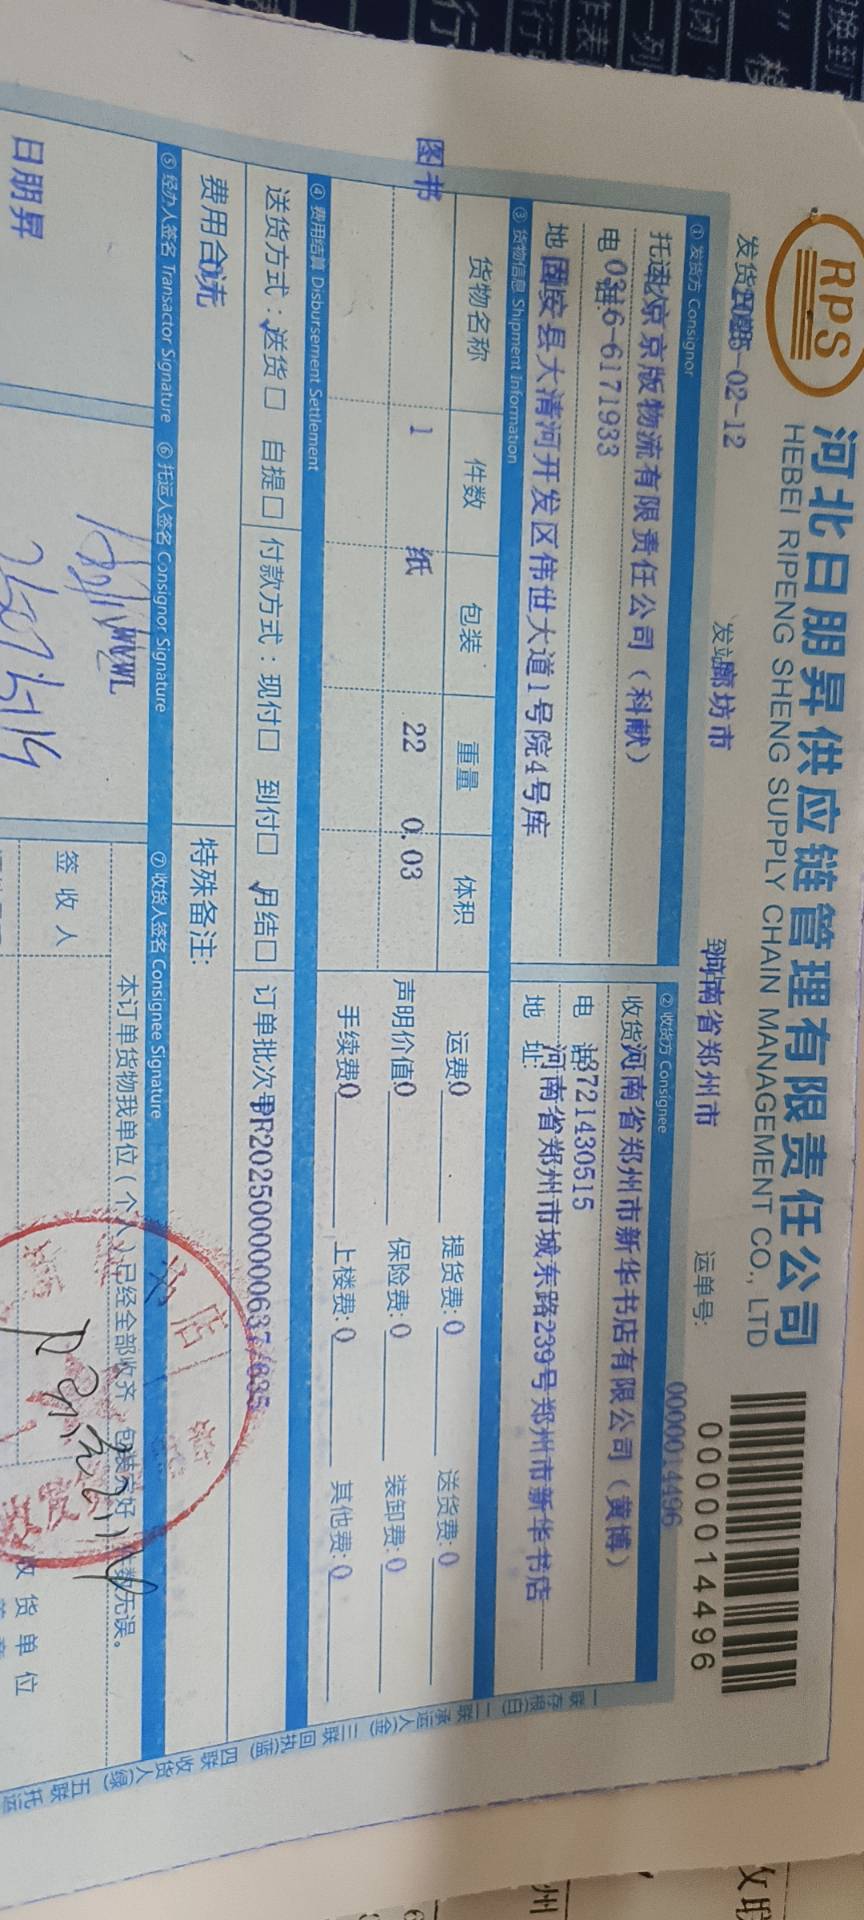 RPS
河北日朋昇供应链管理有限责任公司
HEBEI RIPENG SHENG SUPPLY CHAIN MANAGEMENT CO., LTD
0000014496
-02-12 发站廊坊市 到河南省郑州市 运单号: 0000014496
① 发货方 Consignor
京版物流有限责任公司（科献）
0316-6171933
地 固安县大清河开发区伟世大道1号院4号库
② 收货方 Consignee
收货 河南省郑州市新华书店有限公司（黄博）
电 3721430515
地址: 河南省郑州市城东路239号郑州市新华书店
③ 货物信息 Shipment Information
货物名称 件数 包装 重量 体积
图书 1 纸 22 0.03
运费0 提货费:0 送货费:0
声明价值0 保险费:0 装卸费:0
手续费0 上楼费:0 其他费:0
④ 费用结算 Disbursement Settlement
送货方式: 送货□ 自提□ 付款方式: 现付□ 到付□ 月结□ 订单批次号
费用合 特殊备注:
⑤ 经办人签名 Transactor Signature ⑥ 托运人签名 Consignor Signature ⑦ 收货人签名 Consignee Signature
本订单货物我单位（个人）已经全部收齐 包装完好 件数无误。
日朋昇
签收人
收货单位
一联存根(白) 二联承运人(金) 三联回执(蓝) 四联收货人(绿) 五联托运
店